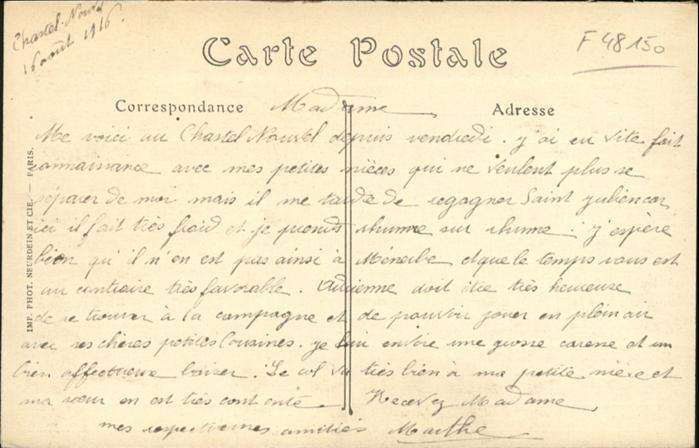 Chastel-Nouvel
16 août 1916
F 48150
Carte Postale
Correspondance
Adresse
Madame
Me voici au Chastel Nouvel depuis vendredi. j'ai eu vite fait
connaissance avec mes petites nièces qui ne veulent plus se
séparer de moi mais il me tarde de regagner Saint Julien car
ici il fait très froid et je prends rhume sur rhume. j'espère
bien qu'il n'en est pas ainsi à Ménerbe et que le temps vous est
au contraire très favorable. Adrienne doit être très heureuse
de se trouver à la campagne et de pouvoir jouer en plein air
avec ses chères petites Cousines. je lui envoie une grosse caresse et un
bien affectueux baiser. Le col va très bien à ma petite nièce et
ma sœur en est très contente. Recevez Madame,
mes respectueuses amitiés Marthe
IMP. PHOT. NEURDEIN ET CIE. — PARIS.